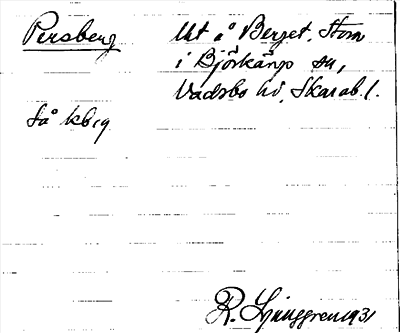 Persberg
Ut å Berget. Torn
i Björkäng sn,
Vadsbo hd, Skarab. l.
Så kbg
R. Ljunggren 1931